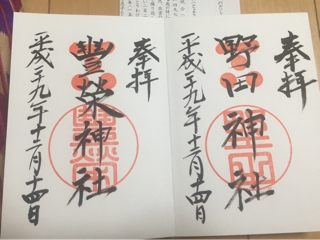 奉拝
野田神社
平成二十九年十二月十四日
奉拝
豐榮神社
平成二十九年十二月十四日